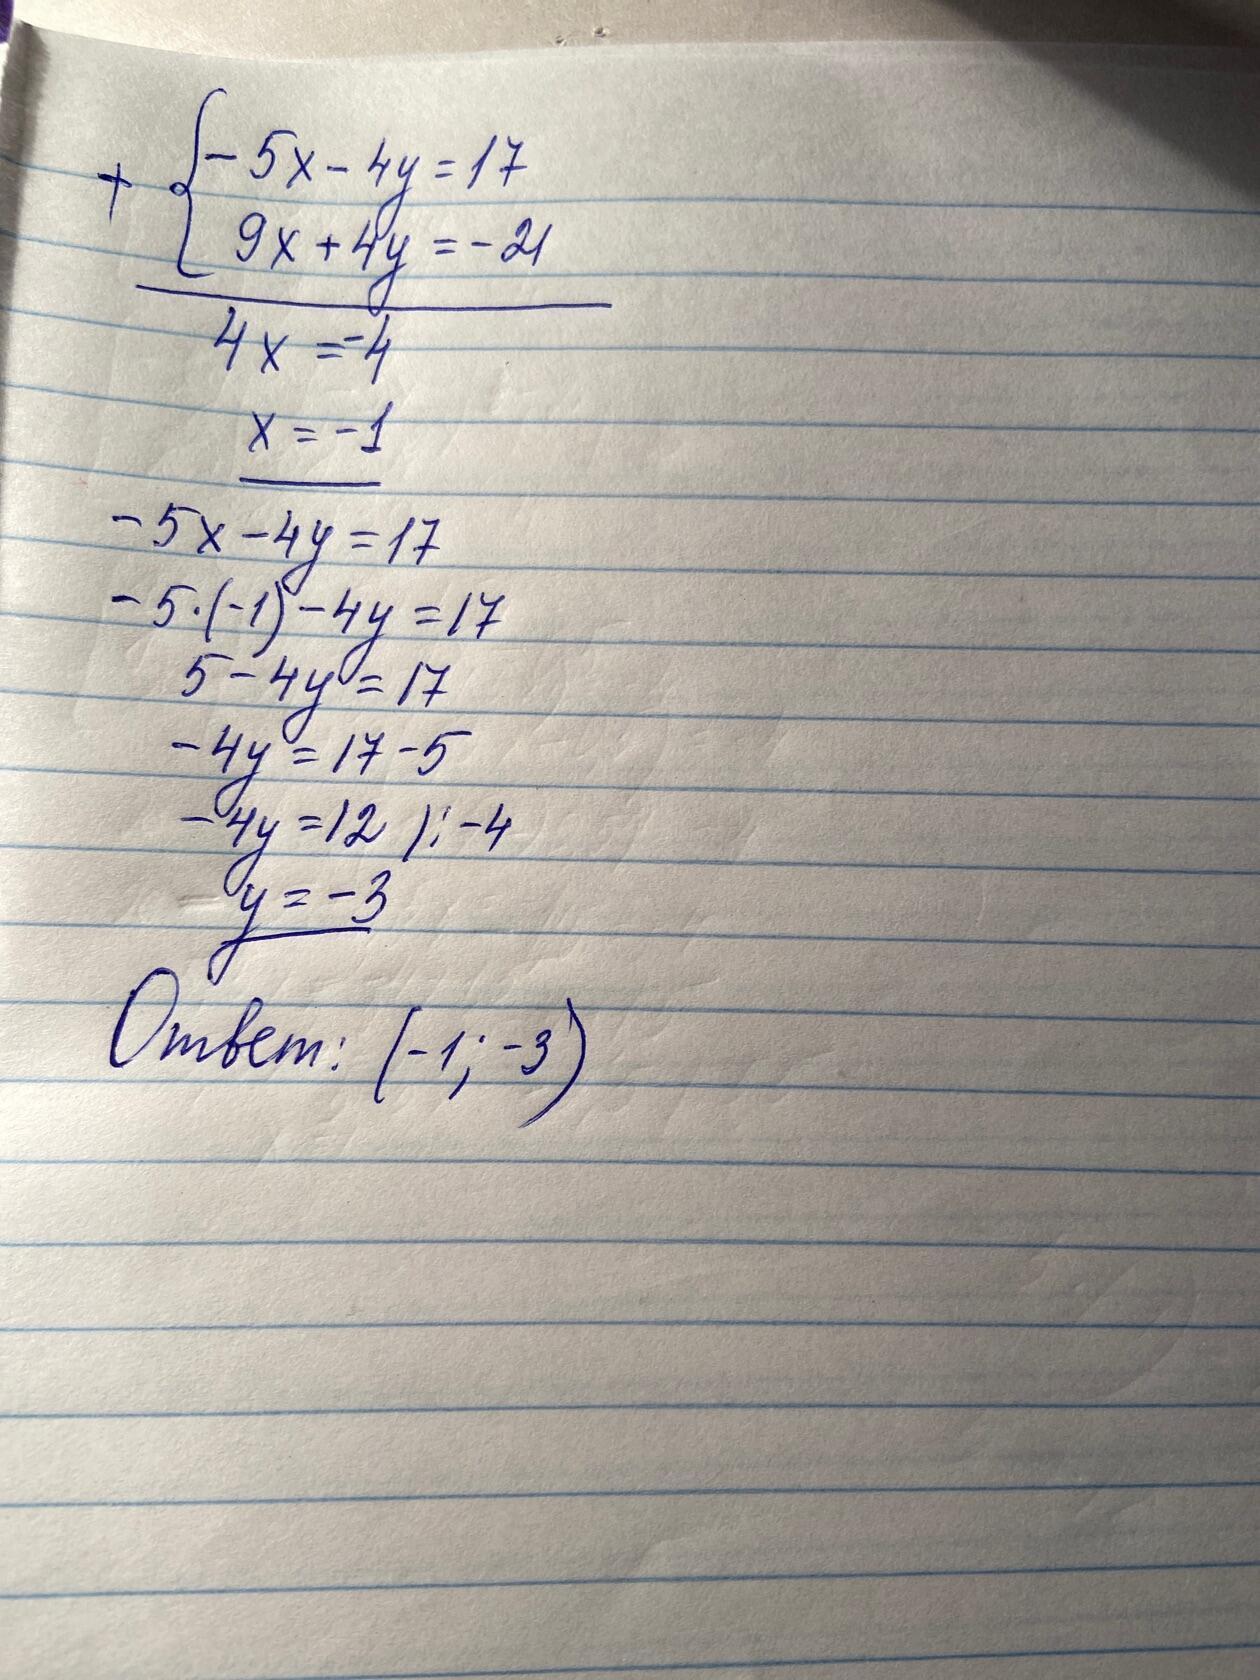 + { -5x - 4y = 17
9x + 4y = -21
4x = -4
x = -1
-5x - 4y = 17
-5·(-1) - 4y = 17
5 - 4y = 17
-4y = 17 - 5
-4y = 12 ): -4
y = -3
Ответ: (-1; -3)